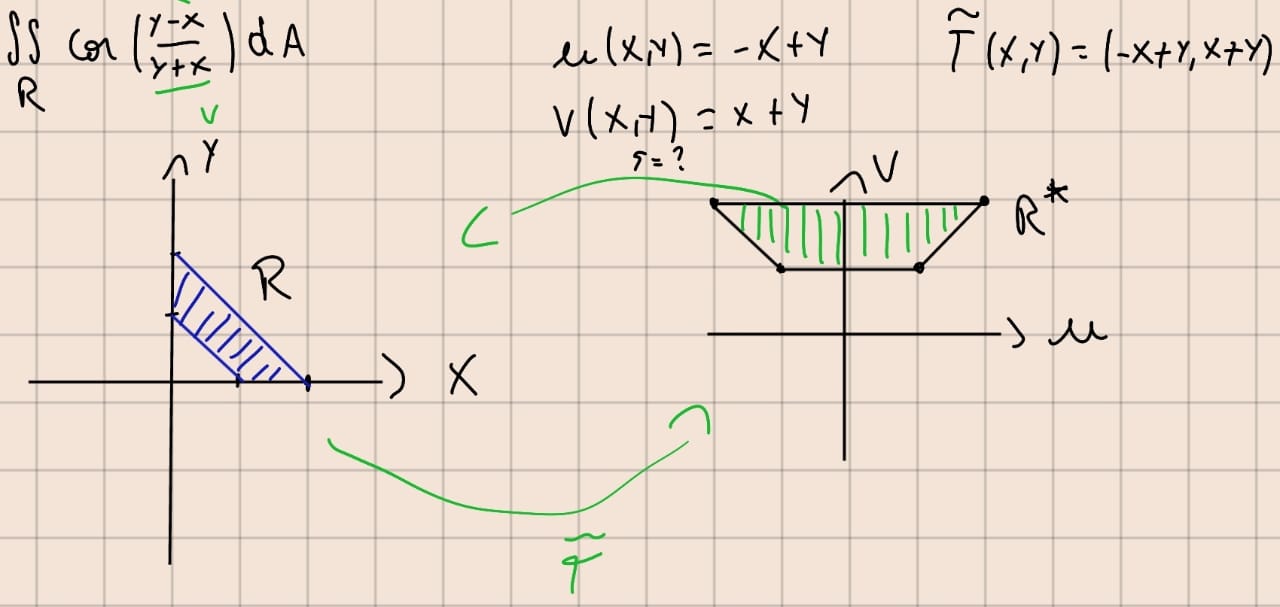 ∬ cos (y-x / y+x) dA
R
v
u(x,y) = -x+y
v(x,y) = x+y
T̃(x,y) = (-x+y, x+y)
T=?
y
R
x
v
R*
u
T̃